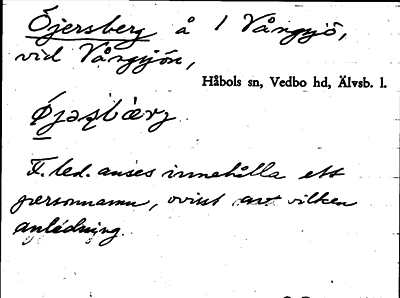 Öjersberg å 1 Vångsjö,
vid Vångsjön,
Håbols sn, Vedbo hd, Älvsb. l.
F. led. anses innehålla ett
personnamn, ovisst av vilken
anledning